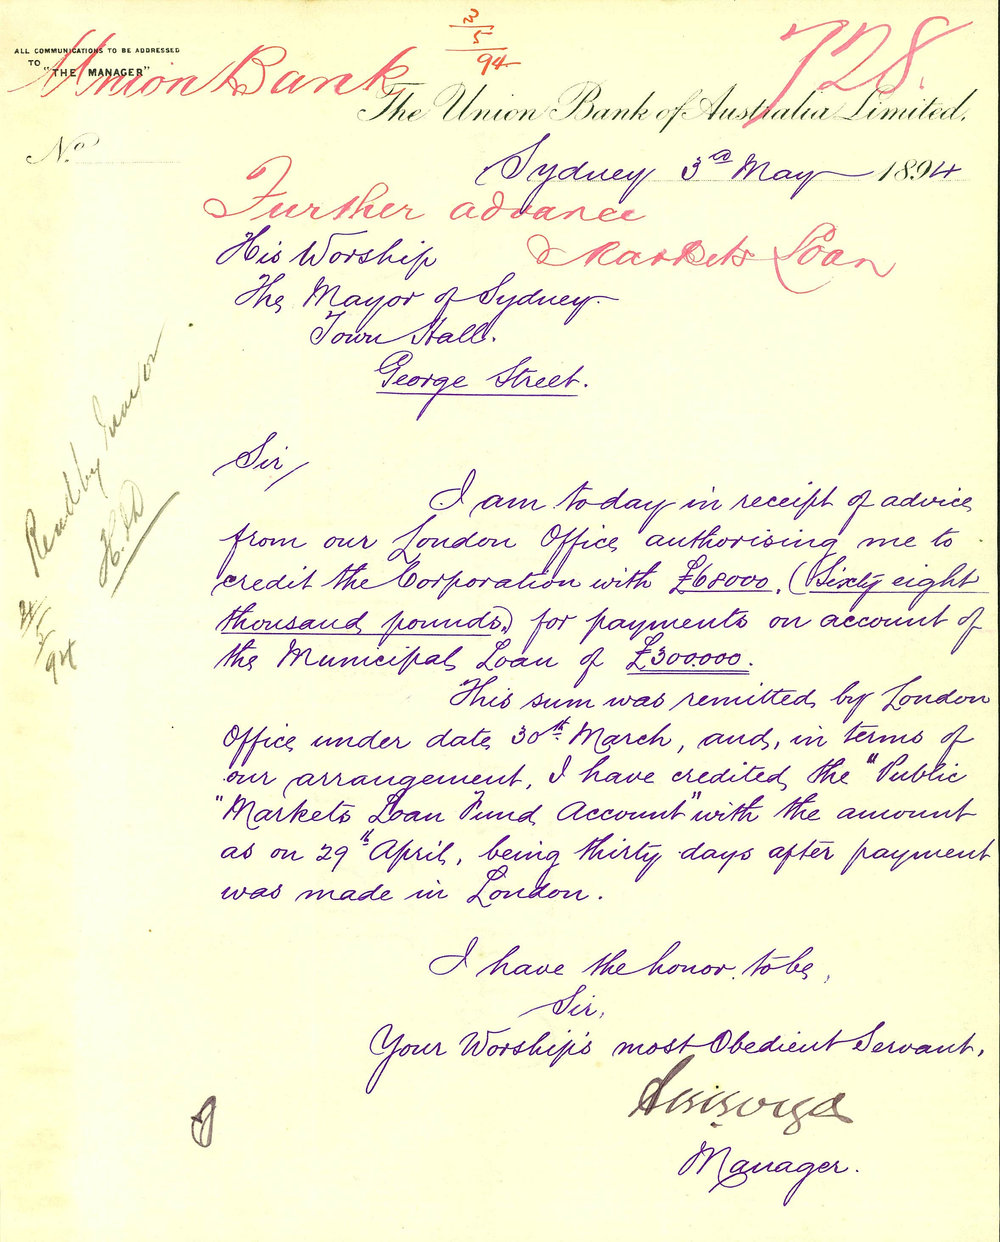 ALL COMMUNICATIONS TO BE ADDRESSED
TO "THE MANAGER"
Union Bank
3/5/94
728.
The Union Bank of Australia Limited.
No.
Sydney 3rd May 1894
Further advance
Markets Loan
His Worship
The Mayor of Sydney
Town Hall.
George Street.
Read by
4/5/94
Sir,
I am to-day in receipt of advice
from our London Office authorising me to
credit the Corporation with £68000. (Sixty eight
thousand pounds,) for payments on account of
the Municipal Loan of £300.000.
This sum was remitted by London
Office under date 30th March, and, in terms of
our arrangement, I have credited the "Public
"Markets Loan Fund Account" with the amount
as on 29th April, being thirty days after payment
was made in London.
I have the honor to be,
Sir,
Your Worship's most Obedient Servant,
Manager.